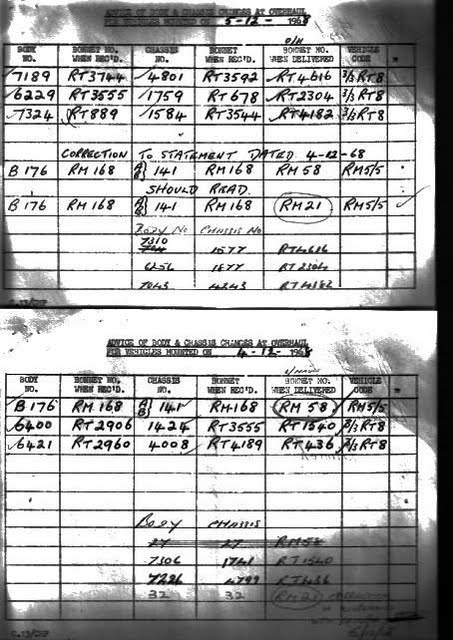 ADVICE OF BODY & CHASSIS CHANGES AT OVERHAUL
FOR VEHICLES MOUNTED ON 5-12- 1968
O/H
BODY NO. BONNET NO. WHEN REC'D. CHASSIS NO. BONNET WHEN REC'D. BONNET NO. WHEN DELIVERED VEHICLE CODE
7189 RT3744 4801 RT3592 RT4616 3/3 RT8
6229 RT3555 1759 RT678 RT2304 3/3 RT8
7324 RT889 1584 RT3544 RT4182 3/3 RT8
CORRECTION TO STATEMENT DATED 4-12-68
B 176 RM168 A} B} 141 RM168 RM 58 RM5/5
SHOULD READ.
B 176 RM168 A} B} 141 RM168 RM21 RM5/5
BODY NO CHASSIS NO
7310
1577 RT4616
6256 1877 RT2304
7043 4243 RT4182
ADVICE OF BODY & CHASSIS CHANGES AT OVERHAUL
FOR VEHICLES MOUNTED ON 4-12- 1968
BODY NO. BONNET NO. WHEN REC'D. CHASSIS NO. BONNET WHEN REC'D. BONNET NO. WHEN DELIVERED VEHICLE CODE
B 176 RM168 A} B} 141 RM168 RM 58 RM5/5
6400 RT2906 1424 RT3555 RT1540 3/3 RT8
6421 RT2960 4008 RT4189 RT436 3/3 RT8
BODY CHASSIS
27 27 RM58
7306 1741 RT1540
7226 4799 RT436
32 32 RM21